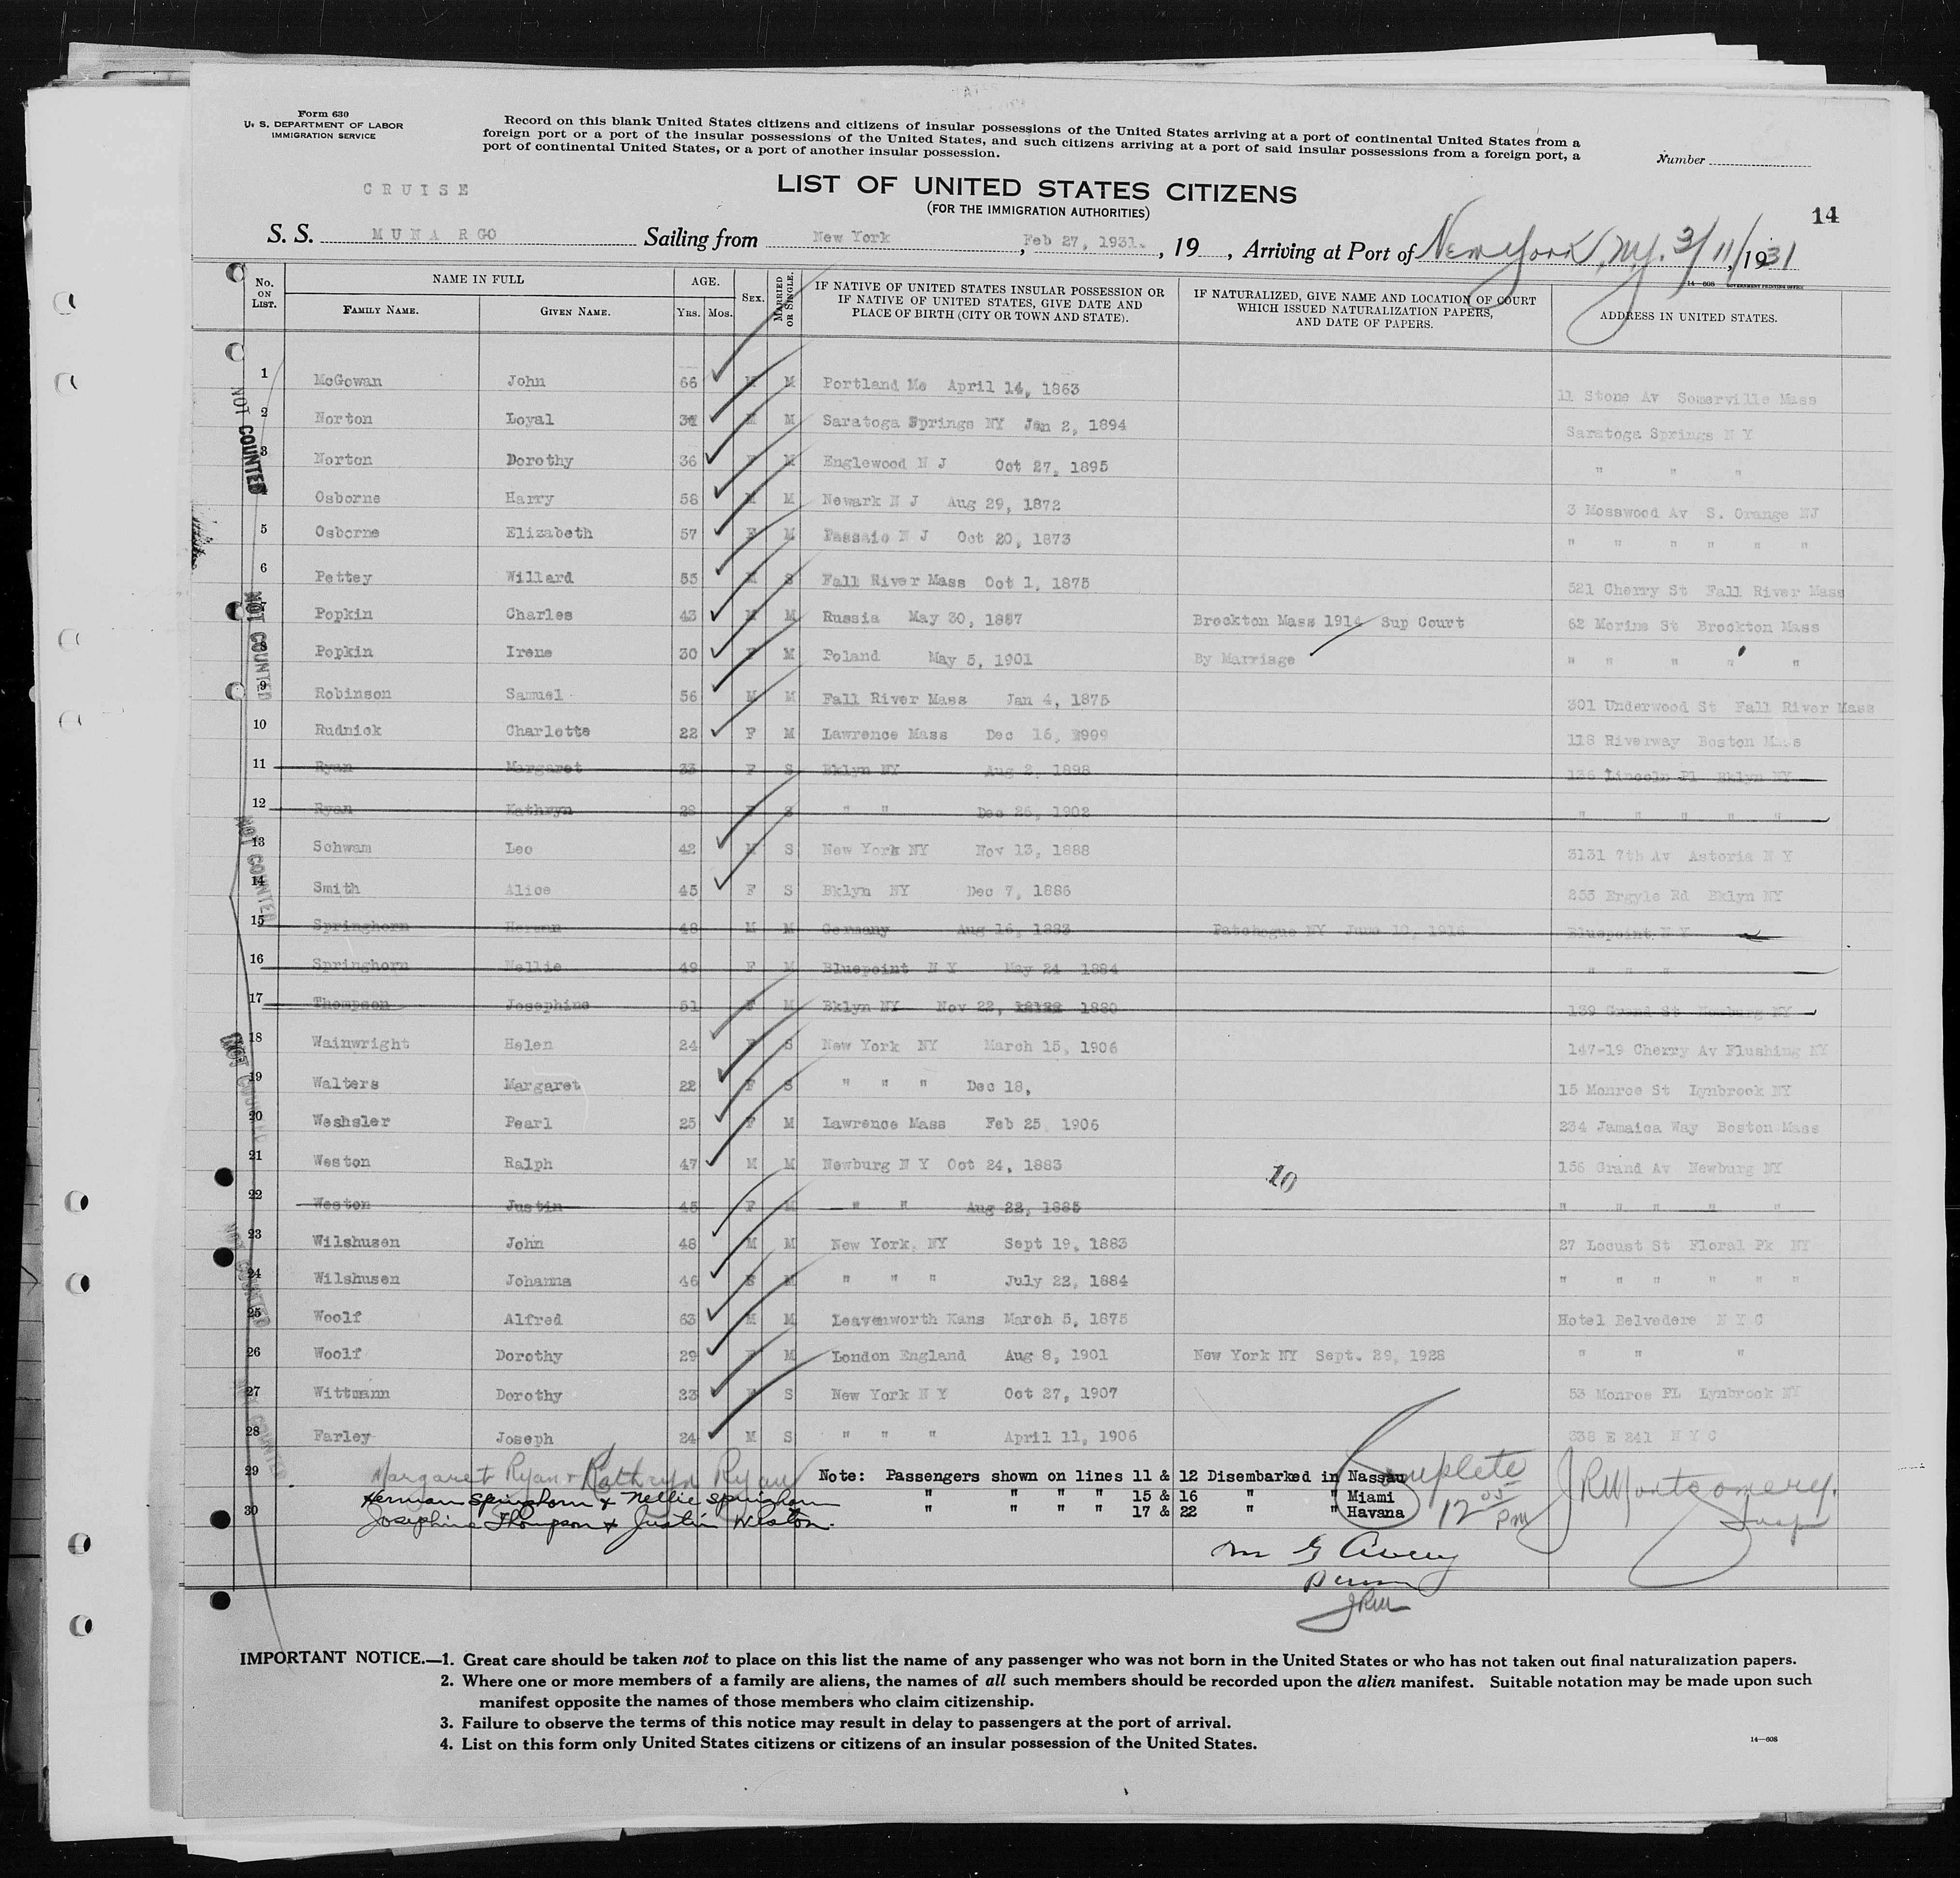 Form 630
U. S. DEPARTMENT OF LABOR
IMMIGRATION SERVICE
Record on this blank United States citizens and citizens of insular possessions of the United States arriving at a port of continental United States from a
foreign port or a port of the insular possessions of the United States, and such citizens arriving at a port of said insular possessions from a foreign port, a
port of continental United States, or a port of another insular possession.
Number
CRUISE
LIST OF UNITED STATES CITIZENS
(FOR THE IMMIGRATION AUTHORITIES)
14
S. S. MUNARGO Sailing from New York, Feb 27, 1931., 19 , Arriving at Port of New York, N.Y. 3/11/1931
14—608 GOVERNMENT PRINTING OFFICE
No. ON LIST. NAME IN FULL AGE. SEX. MARRIED OR SINGLE. IF NATIVE OF UNITED STATES INSULAR POSSESSION OR IF NATIVE OF UNITED STATES, GIVE DATE AND PLACE OF BIRTH (CITY OR TOWN AND STATE). IF NATURALIZED, GIVE NAME AND LOCATION OF COURT WHICH ISSUED NATURALIZATION PAPERS, AND DATE OF PAPERS. ADDRESS IN UNITED STATES.
FAMILY NAME. GIVEN NAME. Yrs. Mos.
1 McGowan John 66 M M Portland Me April 14, 1863 11 Stone Av Somerville Mass
2 Norton Loyal M Saratoga Springs NY Jan 2, 1894 Saratoga Springs N Y
3 Norton Dorothy 36 F M Englewood N J Oct 27, 1895 " " "
Osborne Harry 58 M M Newark N J Aug 29, 1872 3 Mosswood Av S. Orange NJ
5 Osborne Elizabeth 57 F M Passaic N J Oct 20, 1873 " " " " " "
6 Pettey Willard 55 M S Fall River Mass Oct 1, 1875 521 Cherry St Fall River Mass
7 Popkin Charles 43 M M Russia May 30, 1887 Brockton Mass 1914 Sup Court 62 Morins St Brockton Mass
8 Popkin Irene 30 F M Poland May 5, 1901 By Marriage " " " " "
9 Robinson Samuel 56 M M Fall River Mass Jan 4, 1875 301 Underwood St Fall River Mass
10 Rudnick Charlotte 22 F M Lawrence Mass Dec 16, 118 Riverway Boston Mass
11 Ryan Margaret 33 F S Bklyn NY Aug 2, 1898 135 Lincoln Pl Bklyn NY
12 Ryan Kathryn 28 F S " " Dec 26, 1902 " " " " "
13 Schwam Leo 42 M S New York NY Nov 13, 1888 3131 7th Av Astoria N Y
14 Smith Alice 45 F S Bklyn NY Dec 7, 1886 253 Ergyle Rd Bklyn NY
15 Springhorn Herman 48 M M Germany Aug 16, 1883 Patchogue NY June 10, 1916 Bluepoint N Y
16 Springhorn Nellie 49 F M Bluepoint N Y May 24 1884 " " "
17 Thompson Josephine 51 F M Bklyn NY Nov 22, 1880 139 Grand St Newburg NY
18 Wainwright Helen 24 F S New York NY March 15, 1906 147-19 Cherry Av Flushing NY
19 Walters Margaret 22 F S " " " Dec 18, 15 Monroe St Lynbrook NY
20 Weshsler Pearl 25 F M Lawrence Mass Feb 25 1906 234 Jamaica Way Boston Mass
21 Weston Ralph 47 M M Newburg N Y Oct 24, 1883 156 Grand Av Newburg NY
10
22 Weston Justin 45 F M " " Aug 22, 1885 " " " " "
23 Wilshusen John 48 M M New York, NY Sept 19, 1883 27 Locust St Floral Pk NY
24 Wilshusen Johanna 46 F M " " " July 22, 1884 " " " " " "
25 Woolf Alfred 63 M M Leavenworth Kans March 5, 1875 Hotel Belvedere N Y C
26 Woolf Dorothy 29 F M London England Aug 8, 1901 New York NY Sept. 29, 1928 " " "
27 Wittmann Dorothy 23 F S New York N Y Oct 27, 1907 53 Monroe PL Lynbrook NY
28 Farley Joseph 24 M S " " " April 11, 1906 338 E 241 N Y C
29 Margaret Ryan + Kathryn Ryan Note: Passengers shown on lines 11 & 12 Disembarked in Nassau Complete J R Montgomery.
Herman Springhorn & Nellie Springhorn " " " " 15 & 16 " " Miami 12 05 PM Insp
30 Josephine Thompson & Justin Weston. " " " " 17 & 22 " " Havana
JRM
NOT COUNTED
NOT COUNTED
NOT COUNTED
NOT COUNTED
NOT COUNTED
NOT COUNTED
IMPORTANT NOTICE.—1. Great care should be taken not to place on this list the name of any passenger who was not born in the United States or who has not taken out final naturalization papers.
2. Where one or more members of a family are aliens, the names of all such members should be recorded upon the alien manifest. Suitable notation may be made upon such
manifest opposite the names of those members who claim citizenship.
3. Failure to observe the terms of this notice may result in delay to passengers at the port of arrival.
4. List on this form only United States citizens or citizens of an insular possession of the United States.
14—608